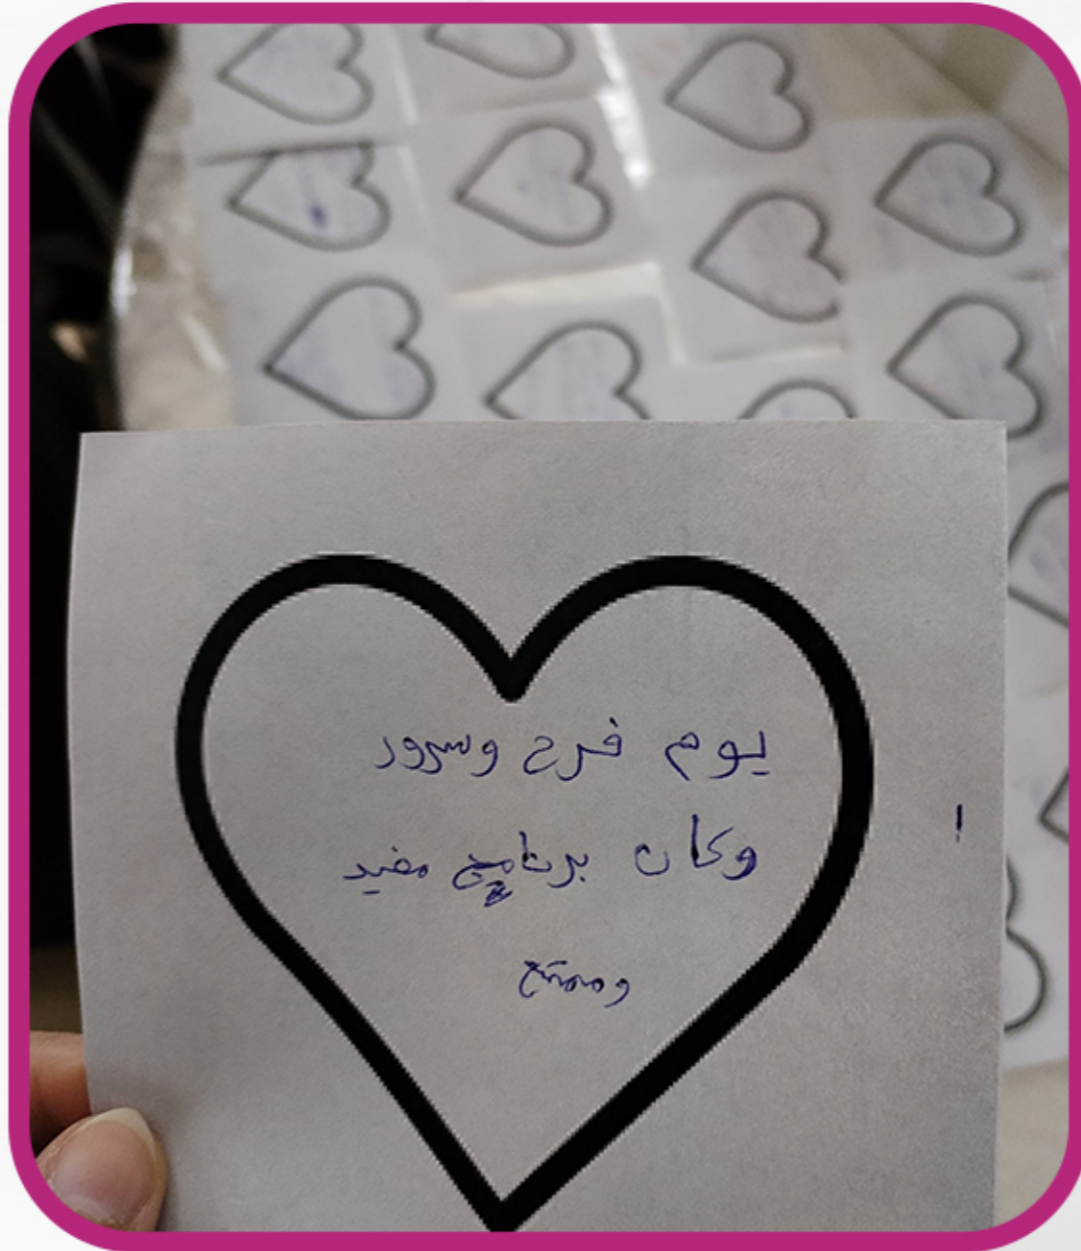 يوم فرح وسرور
وكان برنامج مفيد
وممتع